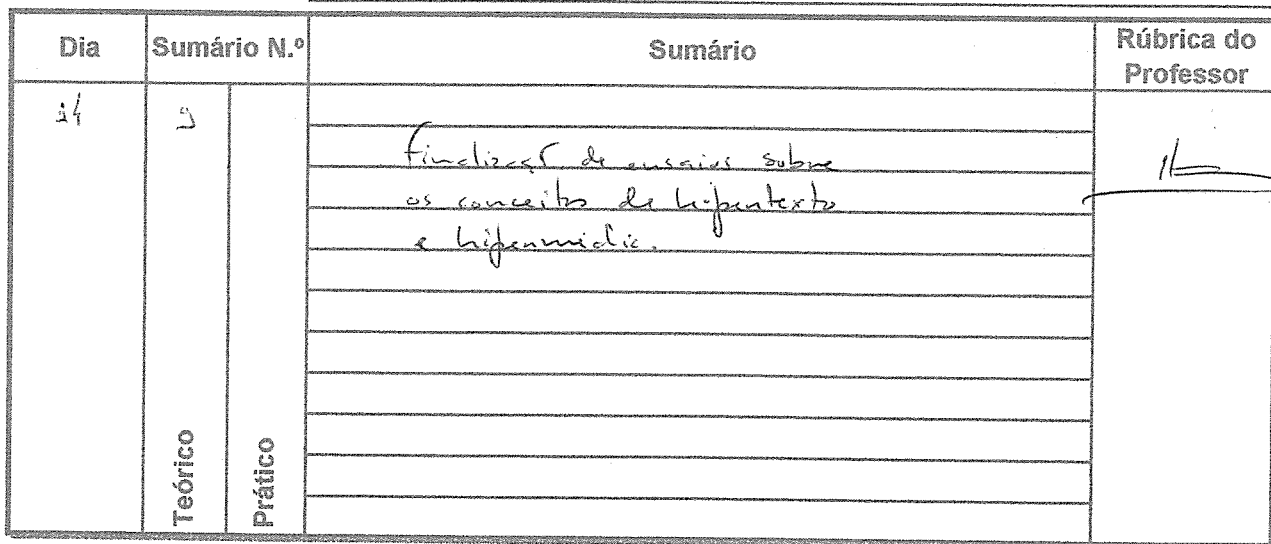 Dia
Sumário N.º
Sumário
Rúbrica do
Professor
9
de ensaios sobre
os conceitos de hipertexto
e hipermídia.
Teórico
Prático